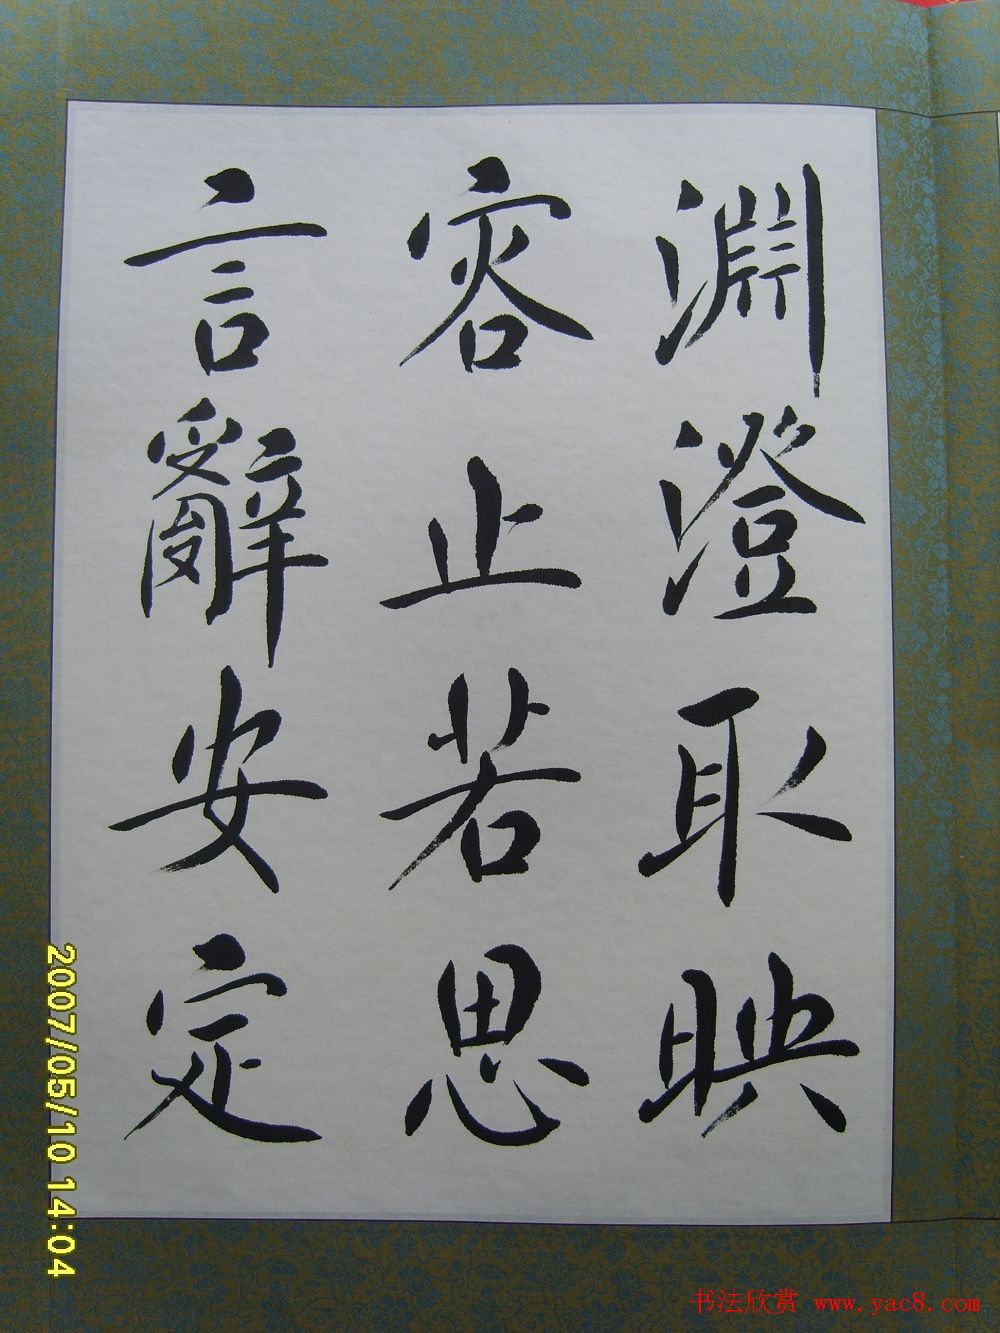 淵澄取映
容止若思
言辭安定
2007/05/10 14:04
书法欣赏 www.yac8.com